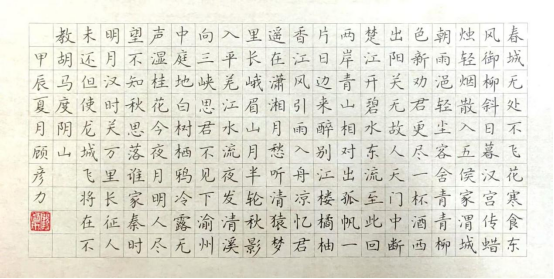 春城无处不飞花寒食东
风御柳斜日暮汉宫传蜡
烛轻烟散入五侯家渭城
朝雨浥轻尘客舍青青柳
色新劝君更尽一杯酒西
出阳关无故人天门中断
楚江开碧水东流至此回
两岸青山相对出孤帆一
片日边来醉别江楼橘柚
香江风引雨入舟凉忆君
遥在潇湘月愁听清猿梦
里长峨眉山月半轮秋影
入平羌江水流夜发清溪
向三峡思君不见下渝州
中庭地白树栖鸦冷露无
声湿桂花今夜月明人尽
望不知秋思落谁家秦时
明月汉时关万里长征人
未还但使龙城飞将在不
教胡马度阴山
甲辰夏月顾彦力